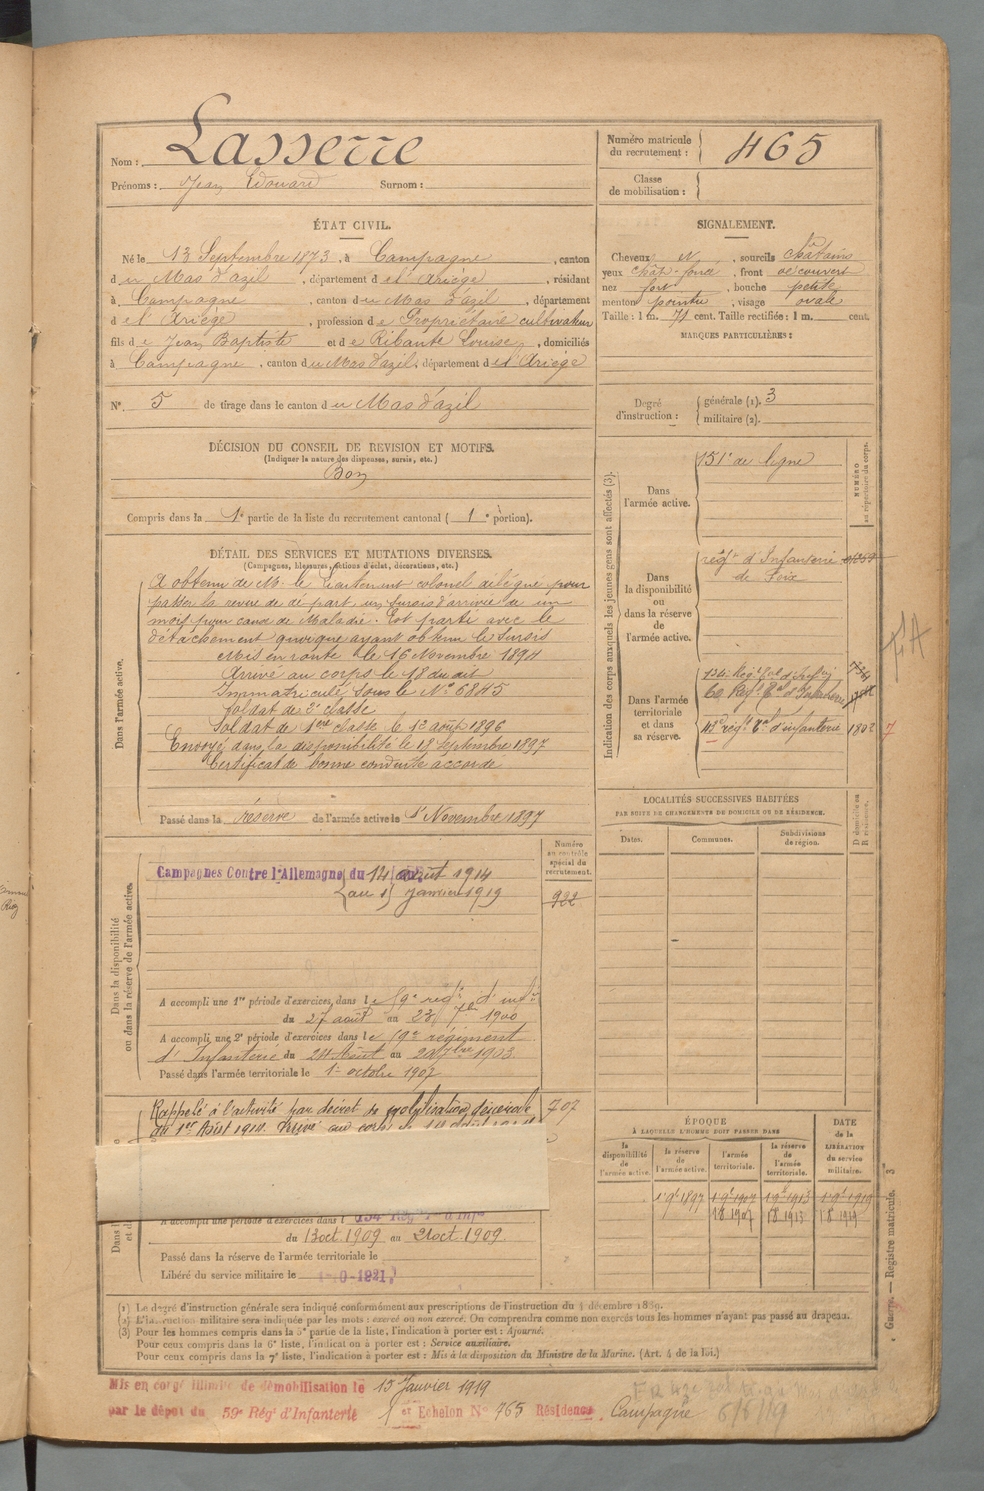 Nom : Lasserre
Prénoms : Jean Edouard Surnom :
Numéro matricule
du recrutement : 465
Classe
de mobilisation :
ÉTAT CIVIL.
Né le 13 Septembre 1873, à Campagne, canton
du Mas d'azil, département de l'Ariège, résidant
à Campagne, canton du Mas d'azil, département
de l'Ariège, profession de Propriétaire cultivateur
fils de Jean Baptiste et de Ribaute Louise, domiciliés
à Campagne, canton du Mas d'azil, département de l'Ariège
N° 5 de tirage dans le canton du Mas d'azil
SIGNALEMENT.
Cheveux N, sourcils châtains
yeux chât. foncé, front découvert
nez fort, bouche petite
menton pointu, visage ovale
Taille : 1 m. 71 cent. Taille rectifiée : 1 m. cent.
MARQUES PARTICULIÈRES :
Degré
d'instruction :
générale (1). 3
militaire (2).
DÉCISION DU CONSEIL DE REVISION ET MOTIFS.
(Indiquer la nature des dispenses, sursis, etc.)
Bon
Compris dans la 1e partie de la liste du recrutement cantonal ( 1e portion).
DÉTAIL DES SERVICES ET MUTATIONS DIVERSES.
(Campagnes, blessures, actions d'éclat, décorations, etc.)
Dans l'armée active.
A obtenu de M. le Lieutenant colonel délégué pour
passer la revue de départ, un sursis d'arrivée de un
mois pour cause de Maladie. Est parti avec le
détachement quoique ayant obtenu le sursis
Mis en route le 16 Novembre 1894
Arrivé au corps le 18 du dit
Immatriculé sous le N° 6845
Soldat de 2e classe
Soldat de 1ère classe le 12 août 1896
Envoyé dans la disponibilité le 18 septembre 1897
Certificat de bonne conduite accordé
Passé dans la réserve de l'armée active le 1er Novembre 1897
Indication des corps auxquels les jeunes gens sont affectés (3).
NUMÉRO
au répertoire du corps.
Dans
l'armée active.
151e de ligne
Dans
la disponibilité
ou
dans la réserve
de
l'armée active.
régt d'Infanterie
de Foix
Dans l'armée
territoriale
et dans
sa réserve.
134 Régt Tal d'Infie
60 Régt Tal d'Infanterie
43e régt Tal d'infanterie 1802
LOCALITÉS SUCCESSIVES HABITÉES
PAR SUITE DE CHANGEMENTS DU DOMICILE OU DE RÉSIDENCE.
Dates.
Communes.
Subdivisions
de région.
D domicile ou
R résidence.
Numéro
au contrôle
spécial du
recrutement.
922
Dans la disponibilité
ou dans la réserve de l'armée active.
Campagnes Contre l'Allemagne du 14 août 1914
au 15 Janvier 1919
A accompli une 1re période d'exercices, dans le 59e régt d'infie
du 27 août au 23 7bre 1900
A accompli une 2e période d'exercices dans le 59e régiment
d'Infanterie du 24 Août au 20 7bre 1903.
Passé dans l'armée territoriale le 1er octobre 1907
Rappelé à l'activité par décret de mobilisation générale
du 1er Août 1914. 707
A accompli une période d'exercices dans l 134 Rég
du 13 oct 1909 au 21 oct 1909.
Passé dans la réserve de l'armée territoriale le
Libéré du service militaire le
ÉPOQUE
À LAQUELLE L'HOMME DOIT PASSER DANS
DATE
de la
LIBÉRATION
du service
militaire.
la
disponibilité
de
l'armée active.
la réserve
de
l'armée active.
l'armée
territoriale.
la réserve
de
l'armée
territoriale.
1 9bre 1897 1 9bre 1907 1 9bre 1913 1 9bre 1919
1 8 1907 1 8 1913 1 8 1919
Guerre. — Registre matricule. 3
(1) Le degré d'instruction générale sera indiqué conformément aux prescriptions de l'instruction du 4 décembre 1889.
(2) L'instruction militaire sera indiquée par les mots : exercé ou non exercé. On comprendra comme non exercés tous les hommes n'ayant pas passé au drapeau.
(3) Pour les hommes compris dans la 5e partie de la liste, l'indication à porter est : Ajourné.
Pour ceux compris dans la 6e liste, l'indication à porter est : Service auxiliaire.
Pour ceux compris dans la 7e liste, l'indication à porter est : Mis à la disposition du Ministre de la Marine. (Art. 4 de la loi.)
Mis en congé illimité de démobilisation le 15 Janvier 1919
par le dépôt du 59e Régt d'Infanterie 1er Echelon N° 765 Résidence Campagne